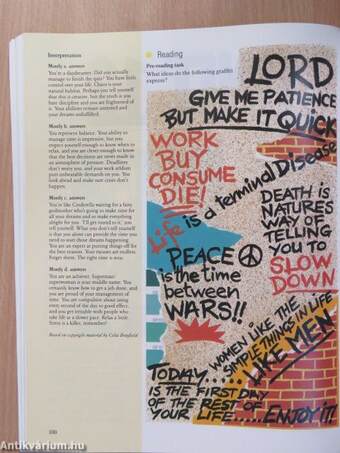 Interpretation
Mostly a. answers
You're a daydreamer. Did you actually
manage to finish the quiz? You have little
control over your life. Chaos is your
natural habitat. Perhaps you tell yourself
that this is creative, but the truth is you
hate discipline and you are frightened of
it. Your abilities remain untested and
your dreams unfulfilled.
Mostly b. answers
You represent balance. Your ability to
manage time is impressive, but you
respect yourself enough to know when to
relax, and you are clever enough to know
that the best decisions are never made in
an atmosphere of pressure. Deadlines
don't worry you, and your work seldom
puts unbearable demands on you. You
look ahead and make sure crises don't
happen.
Mostly c. answers
You're like Cinderella waiting for a fairy
godmother who's going to make time for
all your dreams and to make everything
alright for you. 'I'll get round to it,' you
tell yourself. What you don't tell yourself
is that you alone can provide the time you
need to start those dreams happening.
You are an expert at putting things off for
the best reasons. Your means are endless.
Forget them. The right time is now.
Mostly d. answers
You are an achiever. Superman/
superwoman is your middle name. You
certainly know how to get a job done, and
you are proud of your management of
time. You are compulsive about using
every second of the day to good effect,
and you get irritable with people who
take life at a slower pace. Relax a little.
Stress is a killer, remember?
Based on copyright material by Celia Brayfield
100
Reading
Pre-reading task
What ideas do the following graffiti
express?
LORD
GIVE ME PATIENCE
BUT MAKE IT QUICK
WORK
BUY
CONSUME
DIE!
Life is a terminal Disease
DEATH IS
NATURES
WAY OF
TELLING
YOU TO
SLOW
DOWN
PEACE
is the time
between
WARS!!
WOMEN LIKE THE
SIMPLE THINGS IN LIFE
LIKE MEN
TODAY....
IS THE FIRST DAY
OF THE REST OF
YOUR LIFE.....ENJOY IT!
Antikvárium.hu